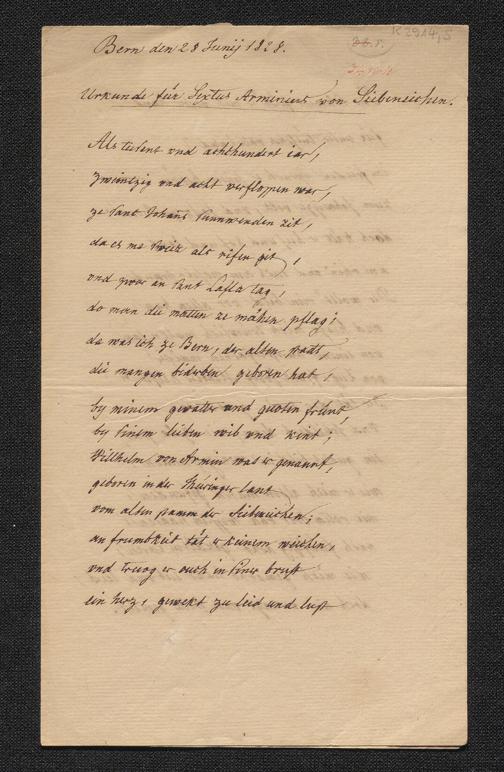 R 2914,5
Bern den 28 Junij 1828.
Urkunde für Sextus Arminius von Siebeneichen.
Als tusent vnd achthundert iar,
zweintzig vnd acht verfloßen war,
ze sant Johans sunnwenden zit,
da es me als rifen git,
vnd zwar an sant tag,
do man die matten ze mähen pflag;
da was ich ze Bern, der alten statt,
die mangen biderben geboren hat,
by minem gevatter vnd guoten frünt,
by sinem lieben wib vnd kint;
Willhelm von Armin was er genannt,
geboren in der Thüringer lant,
vom alten stamm der Siebeneichen;
an frumbkeit tät er keinem wichen,
vnd truog er ouch in siner brust
ein herz, gewekt zu leid und lust